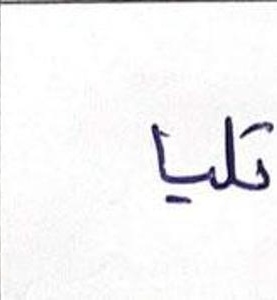 تليا